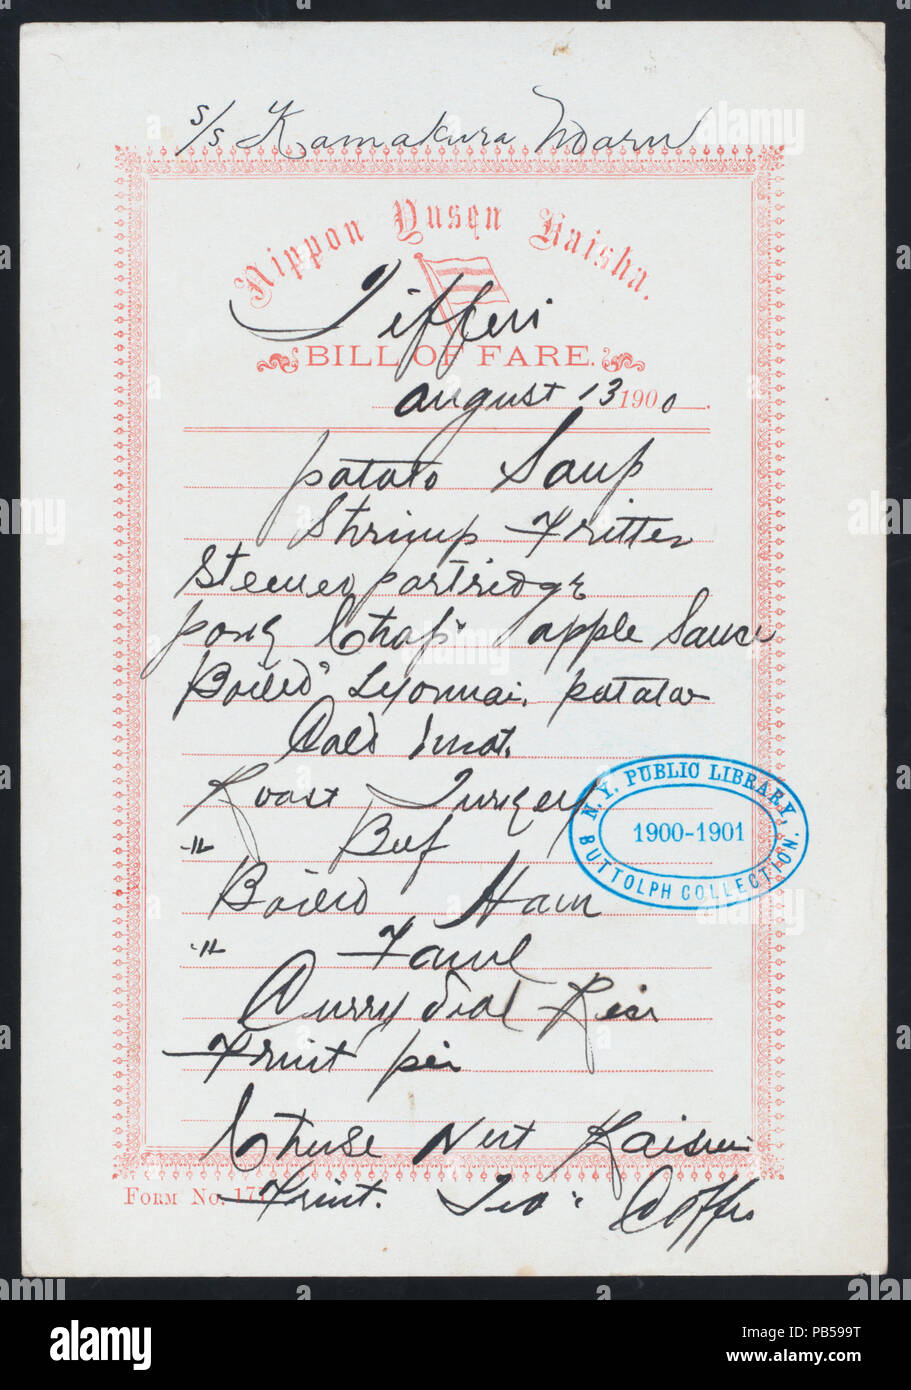 s/s Kamakura Maru
Nippon Yusen Kaisha.
Tiffen
BILL OF FARE.
August 13 1900.
Potato Soup
Shrimp Fritter
Stewed partridge
Pork Chop" apple Sauce
Boiled" Lyonnai. potatoe
Cold meat.
Roast Turkey
" Beef
Boiled Ham
" Fowl
Curry Rice
Fruit pie
Cheese Nut Raisin
Fruit. Tea " Coffee
FORM NO. 17
N. Y. PUBLIC LIBRARY,
1900-1901
BUTTOLPH COLLECTION.
alamy
Image ID: PB599T
www.alamy.com